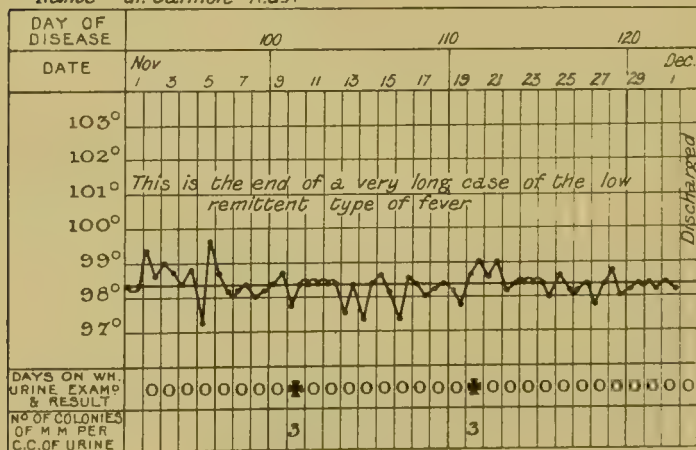 Name
DAY OF
DISEASE
100 110 120
DATE
Nov Dec.
1 3 5 7 9 11 13 15 17 19 21 23 25 27 29 1
103°
102°
101°
This is the end of a very long case of the low
remittent type of fever
100°
99°
98°
97°
Discharged
DAYS ON WH.
URINE EXAMD
& RESULT
0 0 0 0 0 0 0 0 + 0 0 0 0 0 0 0 0 0 + 0 0 0 0 0 0 0 0 0 0 0 0
No OF COLONIES
OF M M PER
C.C. OF URINE
3 3